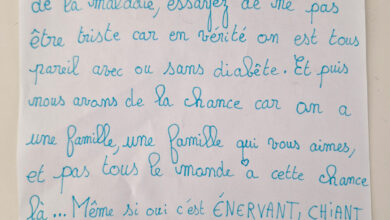 de la maladie, essayez de ne pas
être triste car en vérité on est tous
pareil avec ou sans diabète. Et puis
nous avons de la chance car on a
une famille, une famille qui vous aimes,
et pas tous le monde à cette chance
là... Même si oui c'est ÉNERVANT, CHIANT